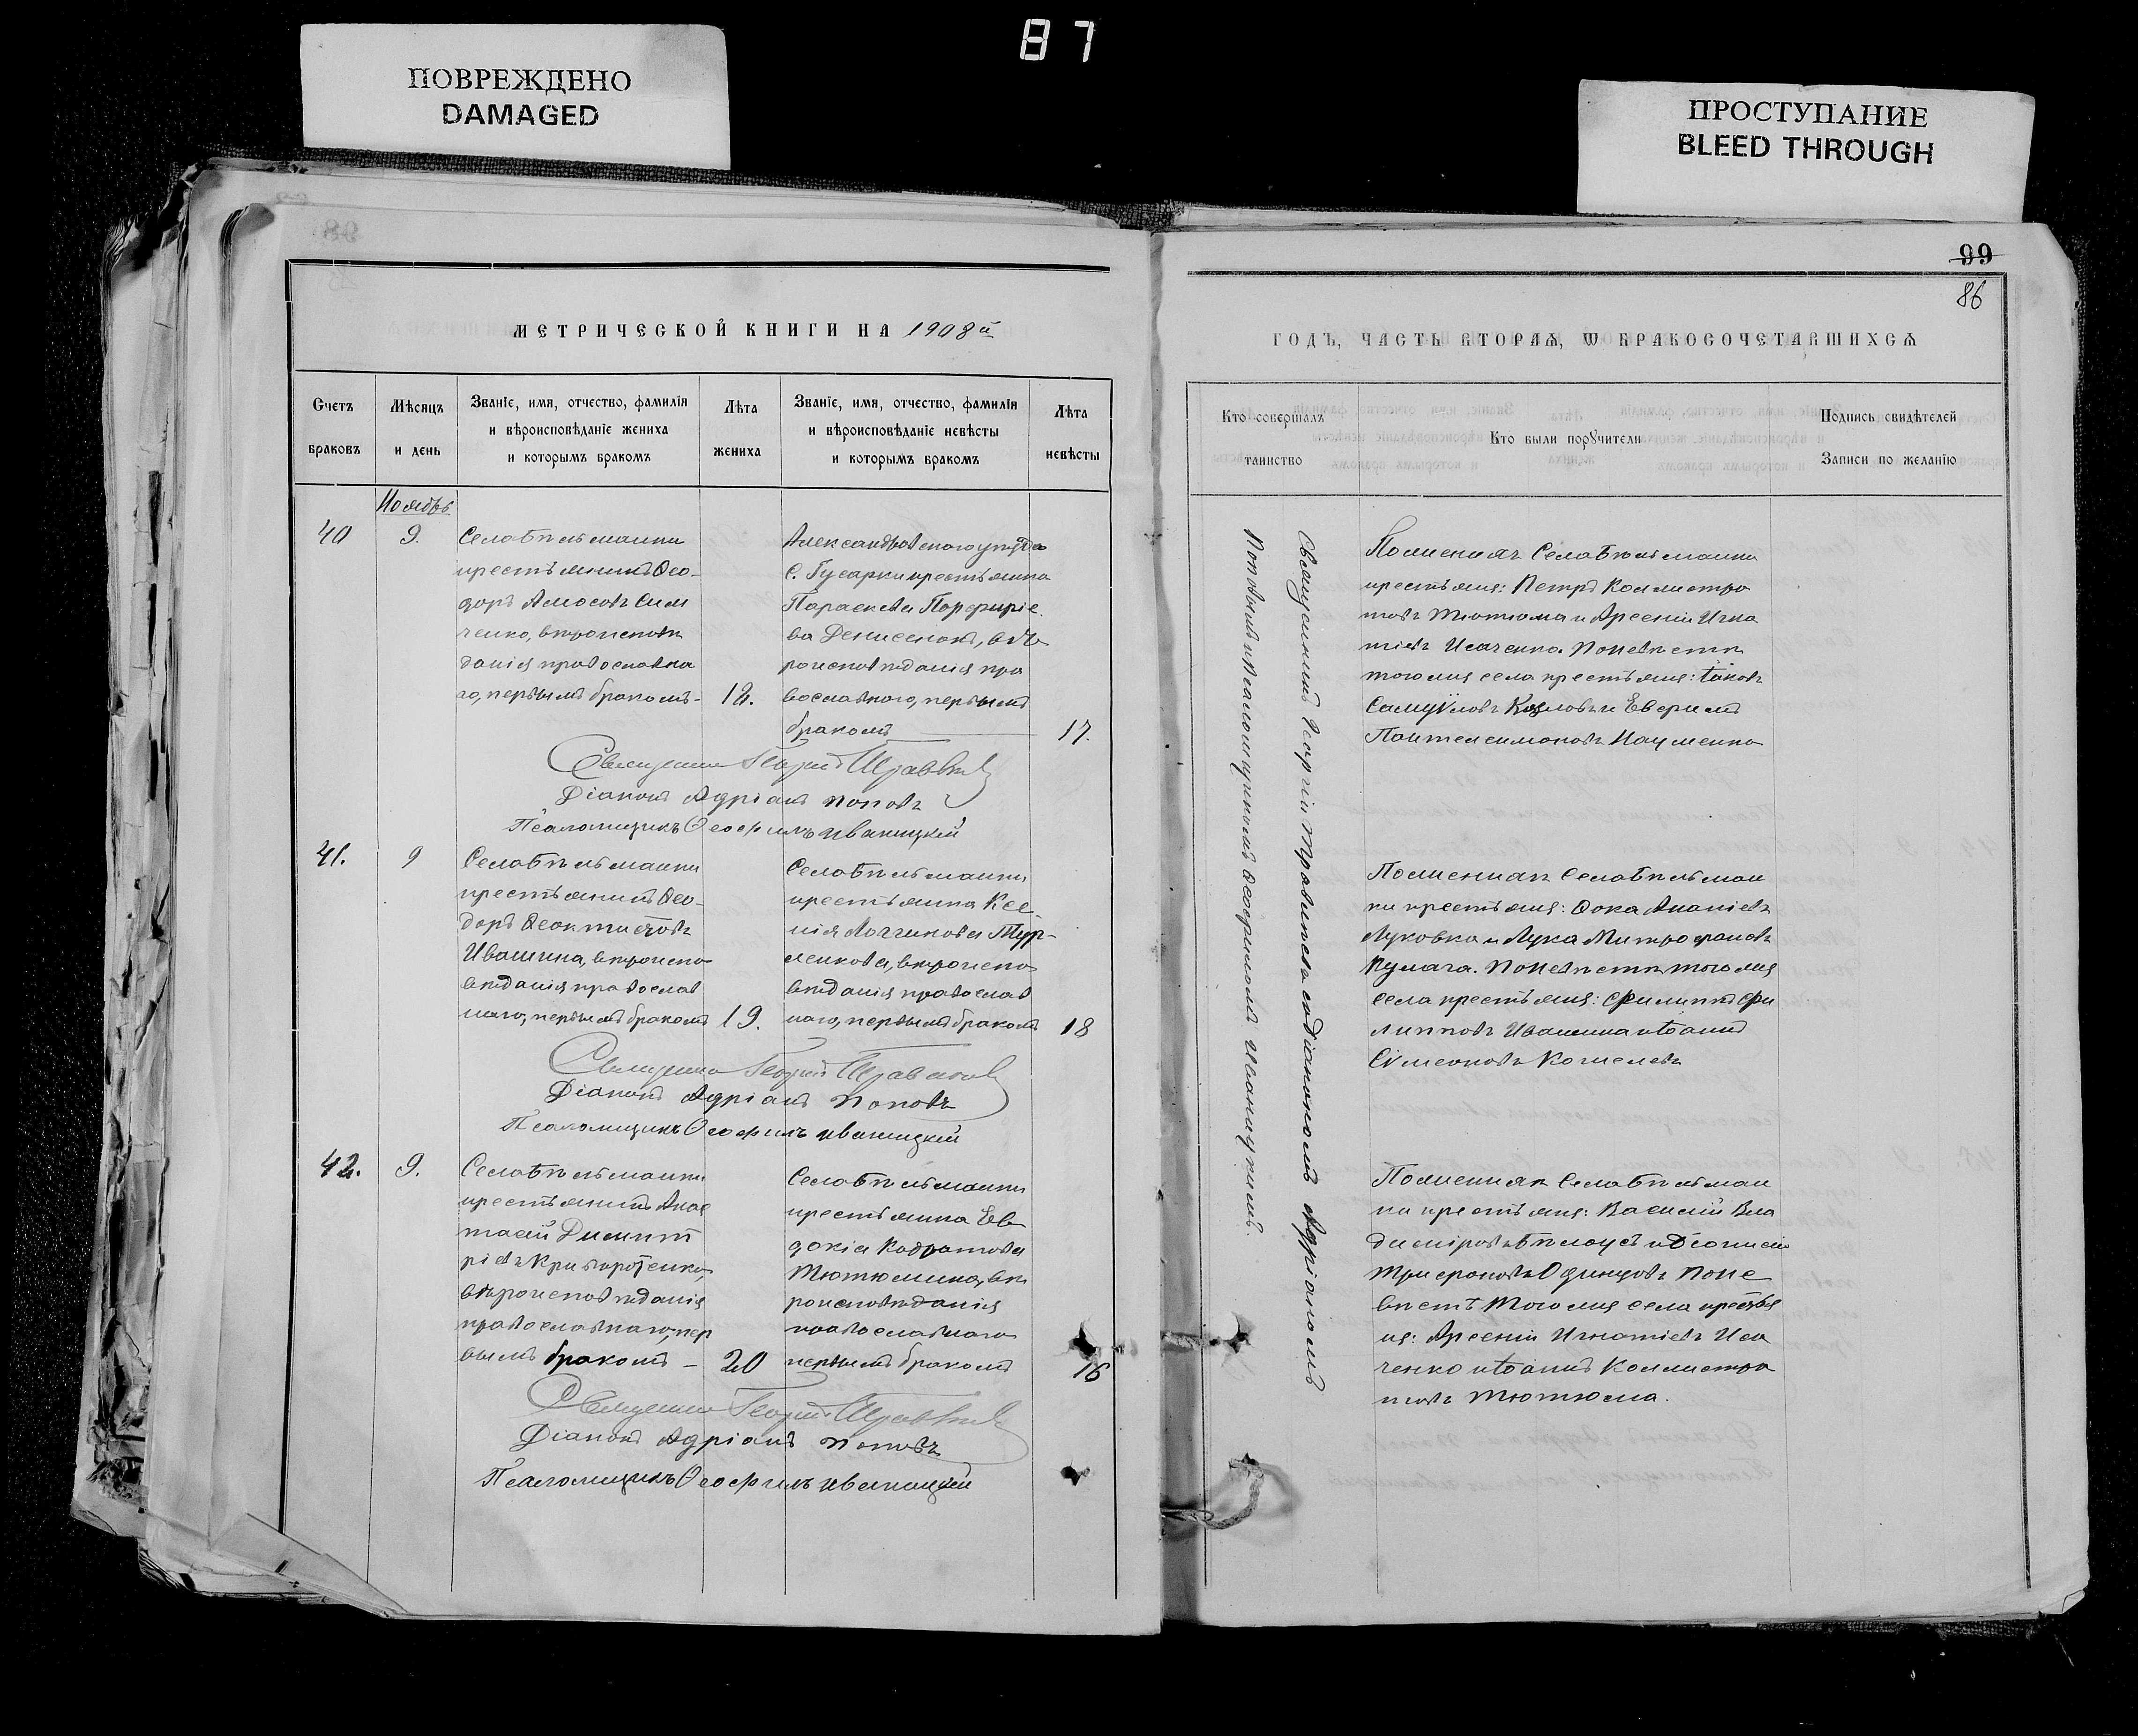 87
ПОВРЕЖДЕНО
DAMAGED
ПРОСТУПАНИЕ
BLEED THROUGH
МЕТРИЧЕСКОЙ КНИГИ НА 1908й
Счетъ
браковъ
Мѣсяцъ
и день
Званіе, имя, отчество, фамилія
и вѣроисповѣданіе жениха
и которымъ бракомъ
Лѣта
жениха
Званіе, имя, отчество, фамилія
и вѣроисповѣданіе невѣсты
и которымъ бракомъ
Лѣта
невѣсты
Ноябрь
40
9.
Села Бѣльманки
крестьянинъ Ѳео-
доръ Амосовъ Сим
ченко, вѣроисповѣ
данія православна
го, первымъ бракомъ -
18.
Александровскаго уѣзда
с. Гусарки крестьянка
Параскева Порфиріе
ва Денисенко, вѣ
роисповѣданія пра
вославнаго, первымъ
бракомъ
17.
Священникъ Георгій
Діаконъ Адріанъ Поповъ
Псаломщикъ Ѳеофилъ Иваницкій
41.
9
Села Бѣльманки
крестьянинъ Ѳео-
доръ Ѳеоктистовъ
Ивашина, вѣроиспо
вѣданія православ
наго, первымъ бракомъ
19.
Села Бѣльманки
крестьянка Ксе
нія Логгинова Тур-
ленкова, вѣроиспо
вѣданія православ
наго, первымъ бракомъ
18
Священникъ Георгій
Діаконъ Адріанъ Поповъ
Псаломщикъ Ѳеофилъ Иваницкій
42.
9.
Села Бѣльманки
крестьянинъ Анас
тасій Димит
ріевъ Криворотенко,
вѣроисповѣданія
православнаго, пер
вымъ бракомъ -
20
Села Бѣльманки
крестьянка Ев
докія Кодратова
Тютюмина, вѣ
роисповѣданія
православнаго
первымъ бракомъ
16
Священникъ Георгій
Діаконъ Адріанъ Поповъ
Псаломщикъ Ѳеофилъ Иваницкій
99
86
ГОДЪ, ЧАСТЬ ВТОРАЯ, Ѡ БРАКОСОЧЕТАВШИХСЯ
Кто совершалъ
таинство
Кто были порꙋчители
Подпись свидѣтелей
Записи по желанію
Священникъ Георгій съ Діакономъ Адріаномъ
Поповымъ и Псаломщикомъ Ѳеофиломъ Иваницкимъ.
По женихѣ Села Бѣльманки
крестьяне: Петръ Каллистра
товъ Тютюма и Арсеній Игна
тіевъ Исаченко. По невѣстѣ
того же села крестьяне: Іаковъ
Самуиловъ Козловъ и
Пантелеимоновъ Науменко
По женихѣ Села Бѣльман
ки крестьяне: Ѳока Ананіевъ
Луковка и Лука Митрофановъ
Кумага. По невѣстѣ того же
села крестьяне: Филиппъ Фи
липповъ Ивашина и Іоаннъ
Симеоновъ Кошелевъ
По женихѣ Села Бѣльман
ки крестьяне: Василій Вла
диміровъ Бѣлоусъ и Діонисій
Трифоновъ Одинцовъ По не
вѣстѣ того же села крестья
не: Арсеній Игнатіевъ Иса
ченко и Іоаннъ Каллистра
товъ Тютюма.